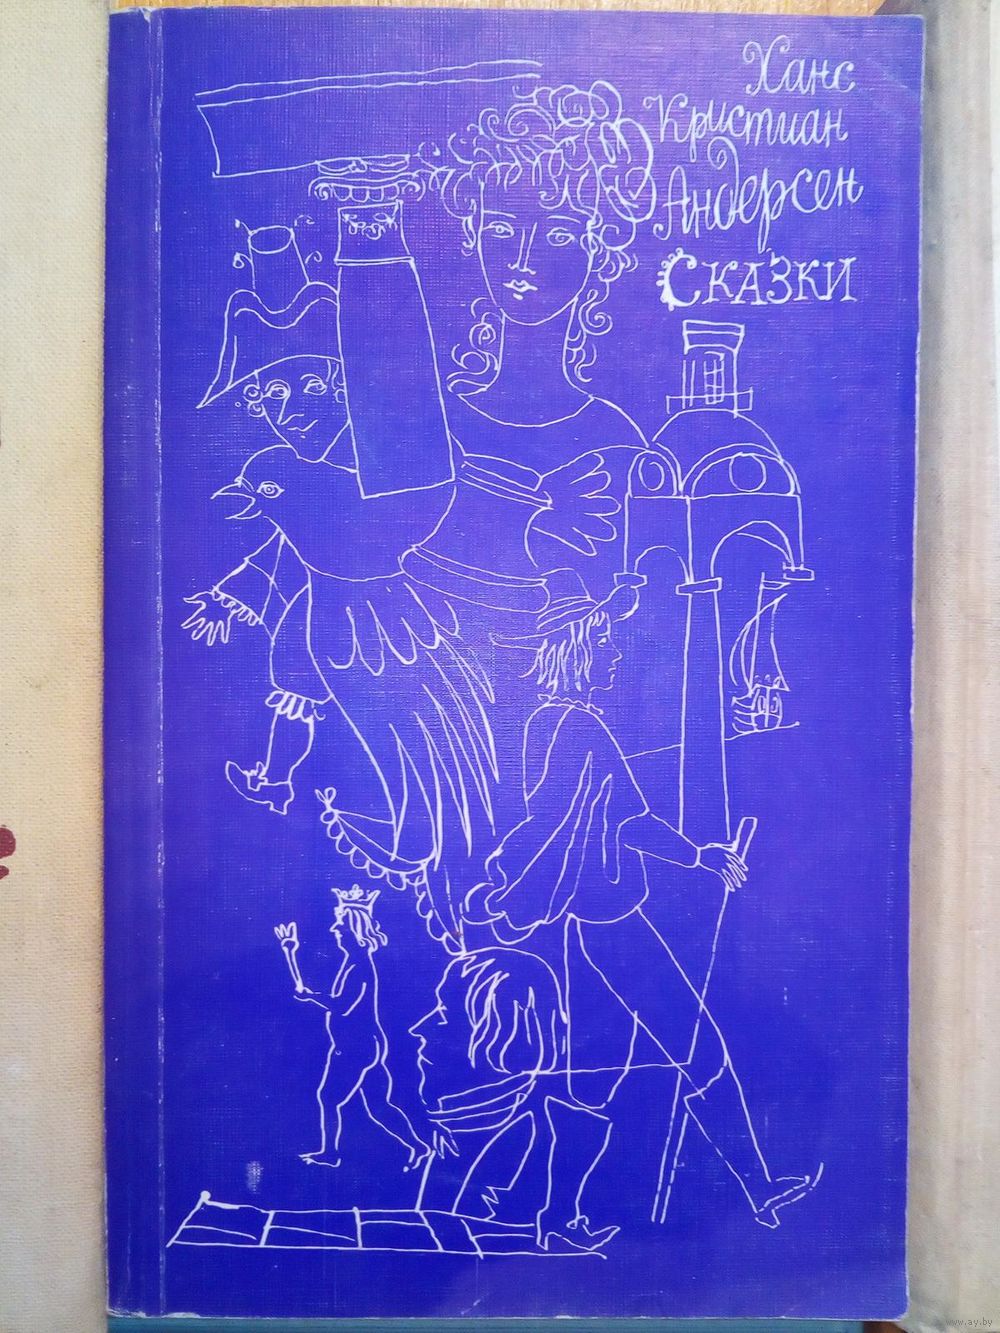 Ханс
Кристиан
Андерсен
Сказки
www.ay.by